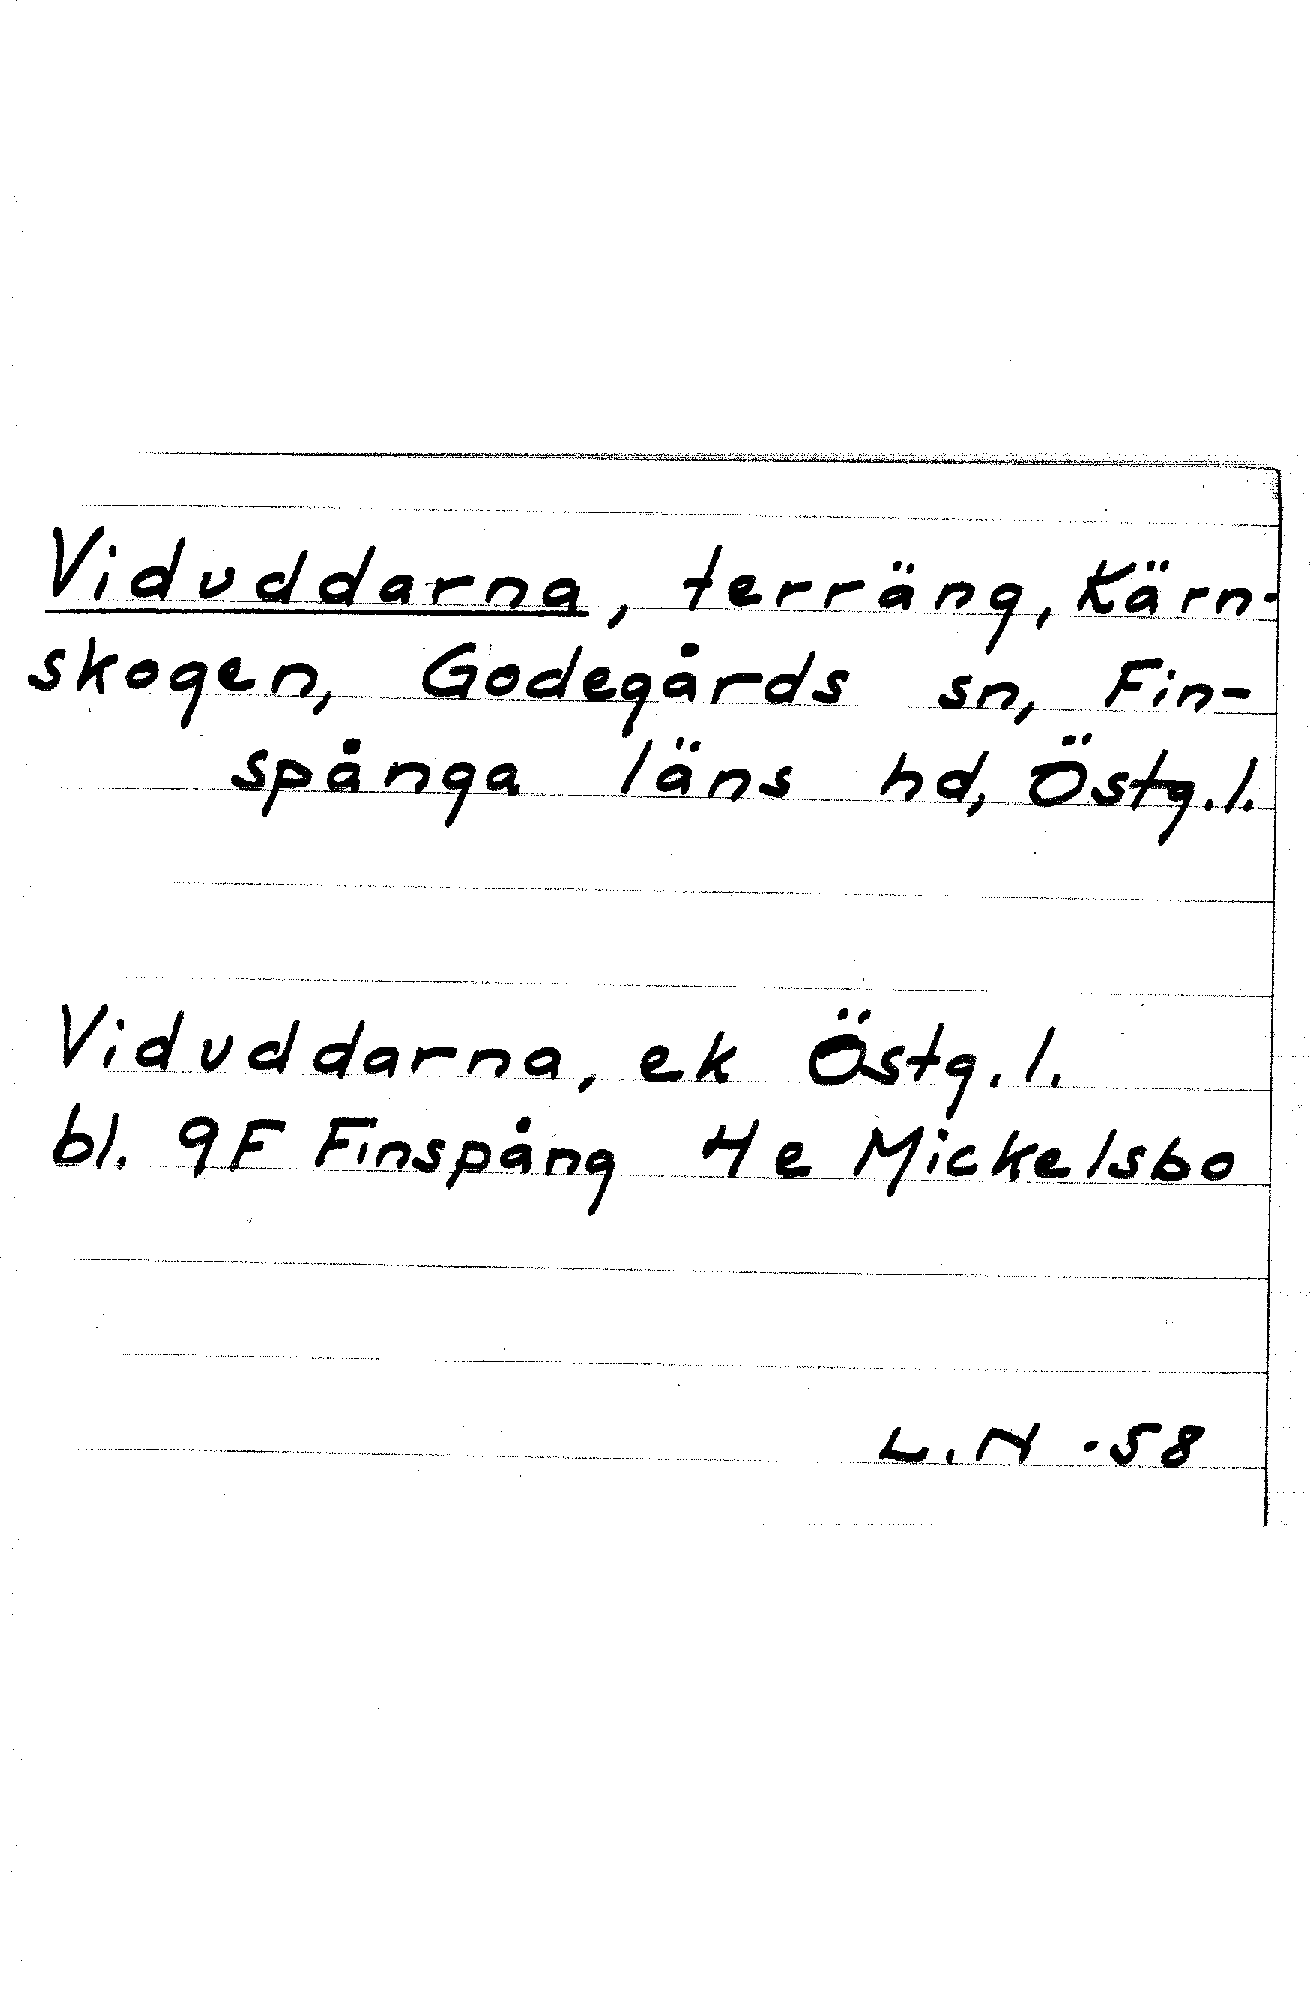 Viduddarna, terräng, Kärn-
skogen, Godegårds sn, Fin-
spånga läns hd, Östg.l.
Viduddarna, ek Östg.l.
bl. 9F Finspång 4e Mickelsbo
L.N -58